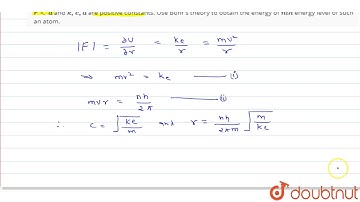 r < a and k, e, a are positive constants. Use Bohr's theory to obtain the energy of nth energy level of such
an atom.
|F| = ∂U/∂r = ke/r = mv²/r
⇒ mv² = ke —— (i)
mvr = nh/2π —— (ii)
∴ c = √(ke/m) and r = nh/2πm √(m/ke)
doubtnut